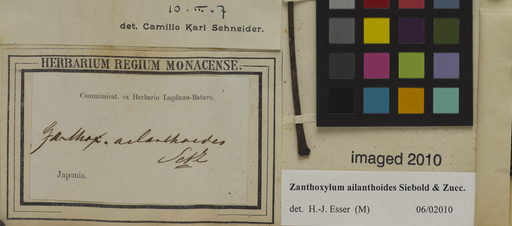 10. III. 07
det. Camillo Karl Schneider.
HERBARIUM REGIUM MONACENSE.
Communicat. ex Herbario Lugduno-Batavo.
Zanthox. ailanthoides
Japonia.
imaged 2010
Zanthoxylum ailanthoides Siebold & Zucc.
det. H.-J. Esser (M) 06/02010